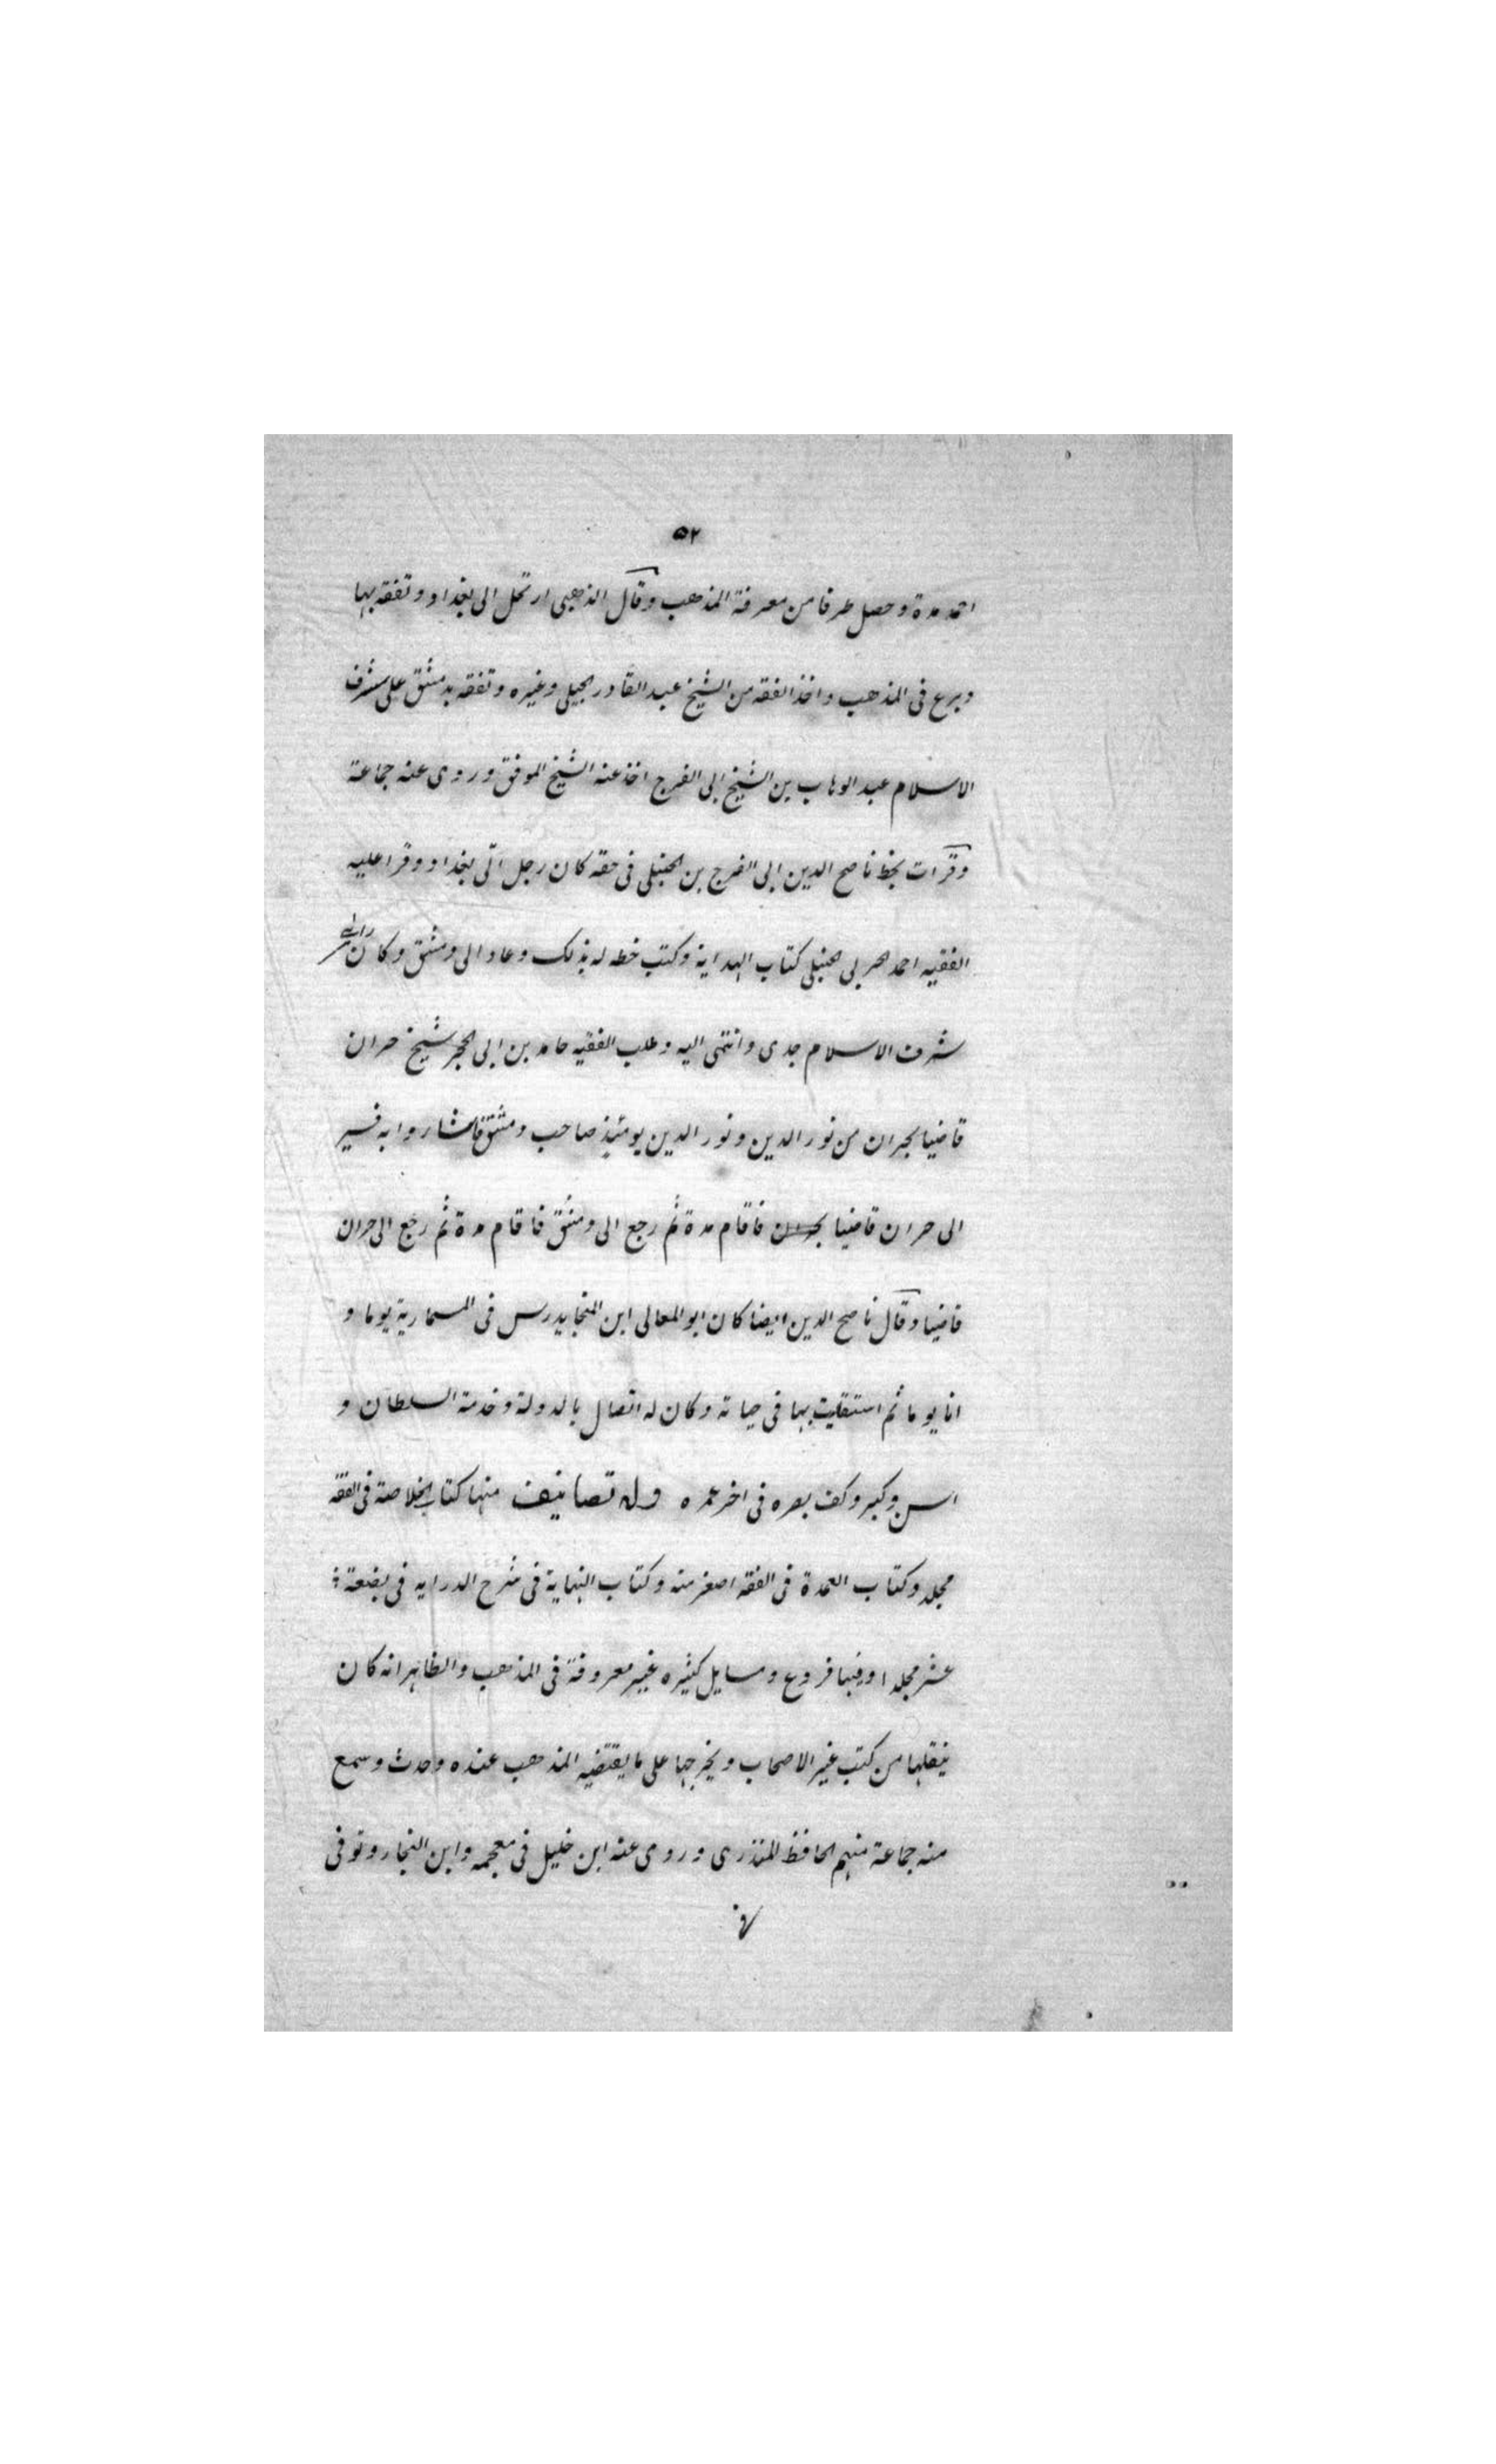 ٥٢
احمد مدة وحصل طرفا من معرفة المذهب وقال الذهبى ارتحل الى بغداد وتفقه بها
وبرع فى المذهب واخذ الفقه من الشيخ عبد القادر الجيلى وغيره وتفقه بدمشق على شرف
الاسلام عبد الوهاب بن الشيخ ابى الفرج اخذ عنه الشيخ الموفق وروى عنه جماعة
وقرات بخط ناصح الدين ابى الفرج بن الحنبلى فى حقه كان رجل اتى بغداد وقرا عليه
الفقيه احمد الحربى الحنبلى كتاب الهداية وكتب خطه له بذلك وعاد الى دمشق وكان
شرف الاسلام جدى وانتمى اليه وطلب الفقيه حامد بن ابى الحجر شيخ حران
قاضيا بحران من نور الدين ونور الدين يومئذ صاحب دمشق فاشاروا به فسير
الى حران قاضيا فاقام مدة ثم رجع الى دمشق فاقام مدة ثم رجع الى حران
قاضيا وقال ناصح الدين ايضا كان ابو المعالى ابن المنجا يدرس فى المسمارية يوما و
انا يوما ثم استقليت بها فى حياته وكان له اتصال بالدولة وخدمة السلطان و
اسن وكبر وكف بصره فى اخر عمره وله تصانيف منها كتاب الخلاصة فى الفقه
مجلد وكتاب العمدة فى الفقه اصغر منه وكتاب النهاية فى شرح الدرايه فى بضعة
عشر مجلدا وفيها فروع ومسايل كثيره غير معروفة فى المذهب والظاهر انه كان
ينقلها من كتب غير الاصحاب ويخرجها على ما يقتضيه المذهب عنده وحدث وسمع
منه جماعة منهم الحافظ المنذرى وروى عنه ابن خليل فى معجمه وابن النجار وتوفى